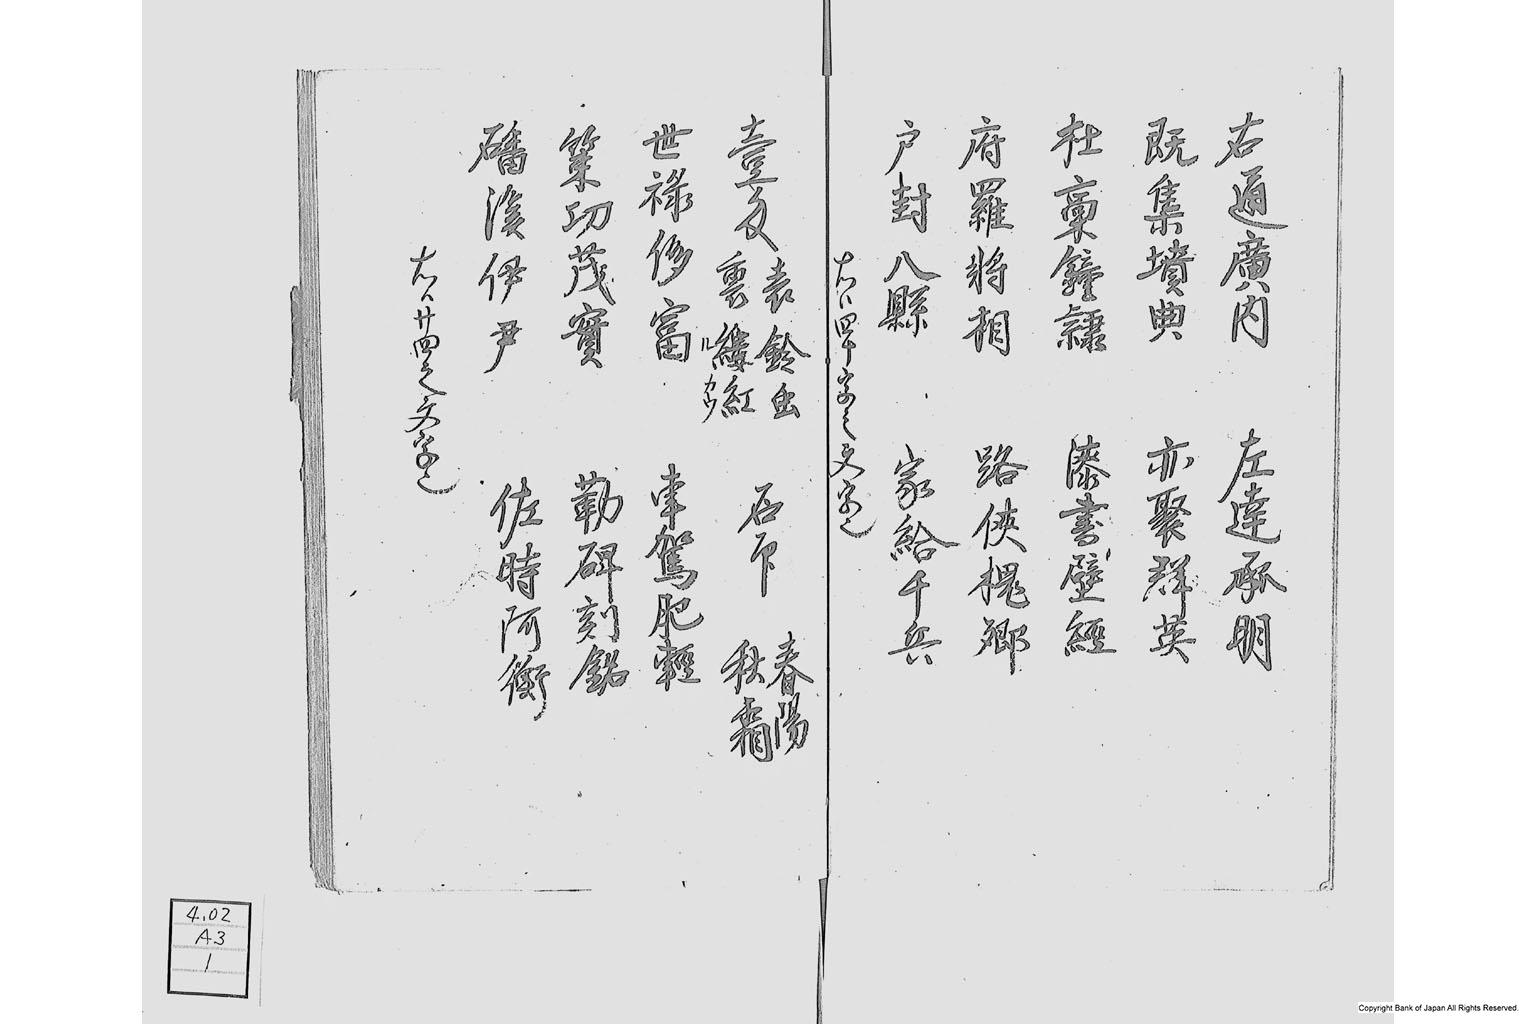 右通廣内 左達承明
既集墳典 亦聚群英
杜稾鐘隷 漆書壁經
府羅將相 路俠槐卿
户封八縣 家給千兵
右八四十字之文字也
壹反
袁鈴
雲縷紅
ル カウ
石
春陽
秋霜
世禄侈富 車駕肥輕
策功茂實 勒碑刻銘
磻溪伊尹 佐時阿衡
右八廿四之文字也
4.02
A3
1
Copyright Bank of Japan All Rights Reserved.